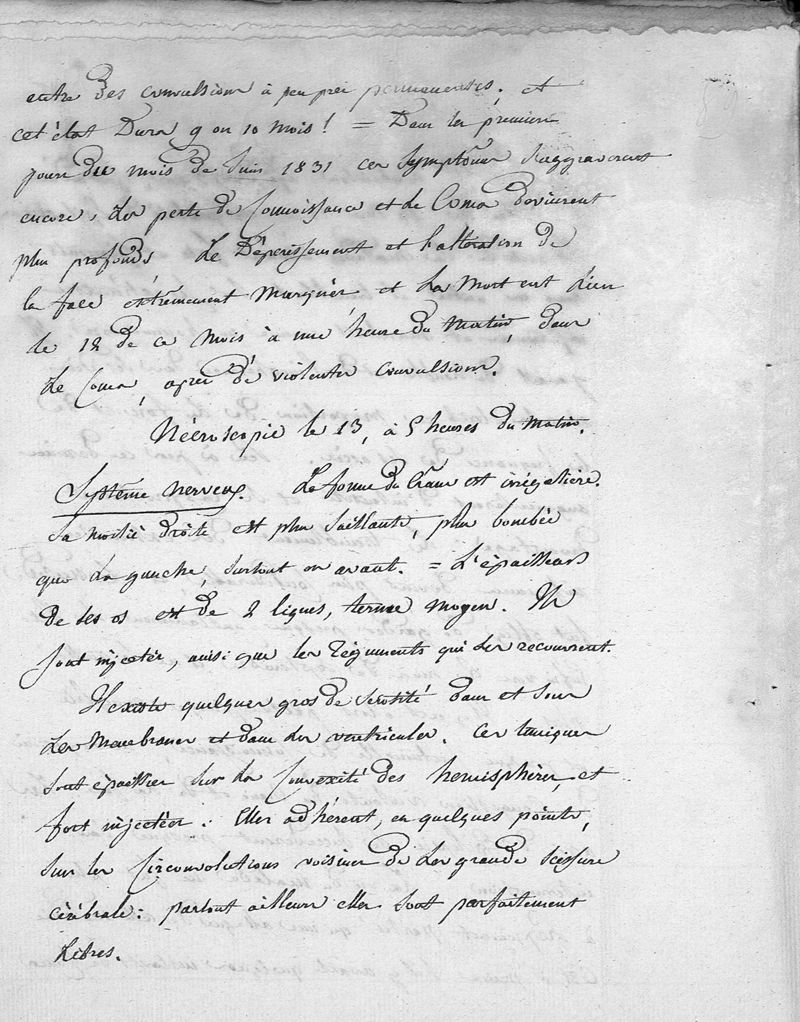 entre des convulsions à peu près permanentes. et
cet état Dura 9 ou 10 mois ! = Dans les premiers
jours du mois de Juin 1831 ces Symptômes s'aggravèrent
encore, La perte de Connoissance et le Coma devinrent
plus profonds Le Dépérissement et l'altération de
la face extrêmement Marqués et La Mort eut lieu
le 12 de ce Mois à une heure du Matin, dans
Le Coma, après de violentes Convulsions.
Nécroscopie le 13, à 5 heures du Matin.
Système nerveux. La forme du Crâne est irrégulière.
Sa moitié droite est plus Saillante, plus bombée
que La gauche, Surtout en avant. = L'épaisseur
De ses os est De 2 lignes, terme moyen. Ils
Sont injectés, ainsi que les Téguments qui Les recouvrent.
Il existe quelques gros de Sérosité dans et Sous
Les Membranes et dans Les ventricules. Ces tuniques
Sont épaissies Sur La Convexité des hémisphères, et
fort injectées : Elles adhérent, en quelques points,
Sur les Circonvolutions voisines de La grande Scissure
cérébrale : partout ailleurs elles Sont parfaitement
Libres.